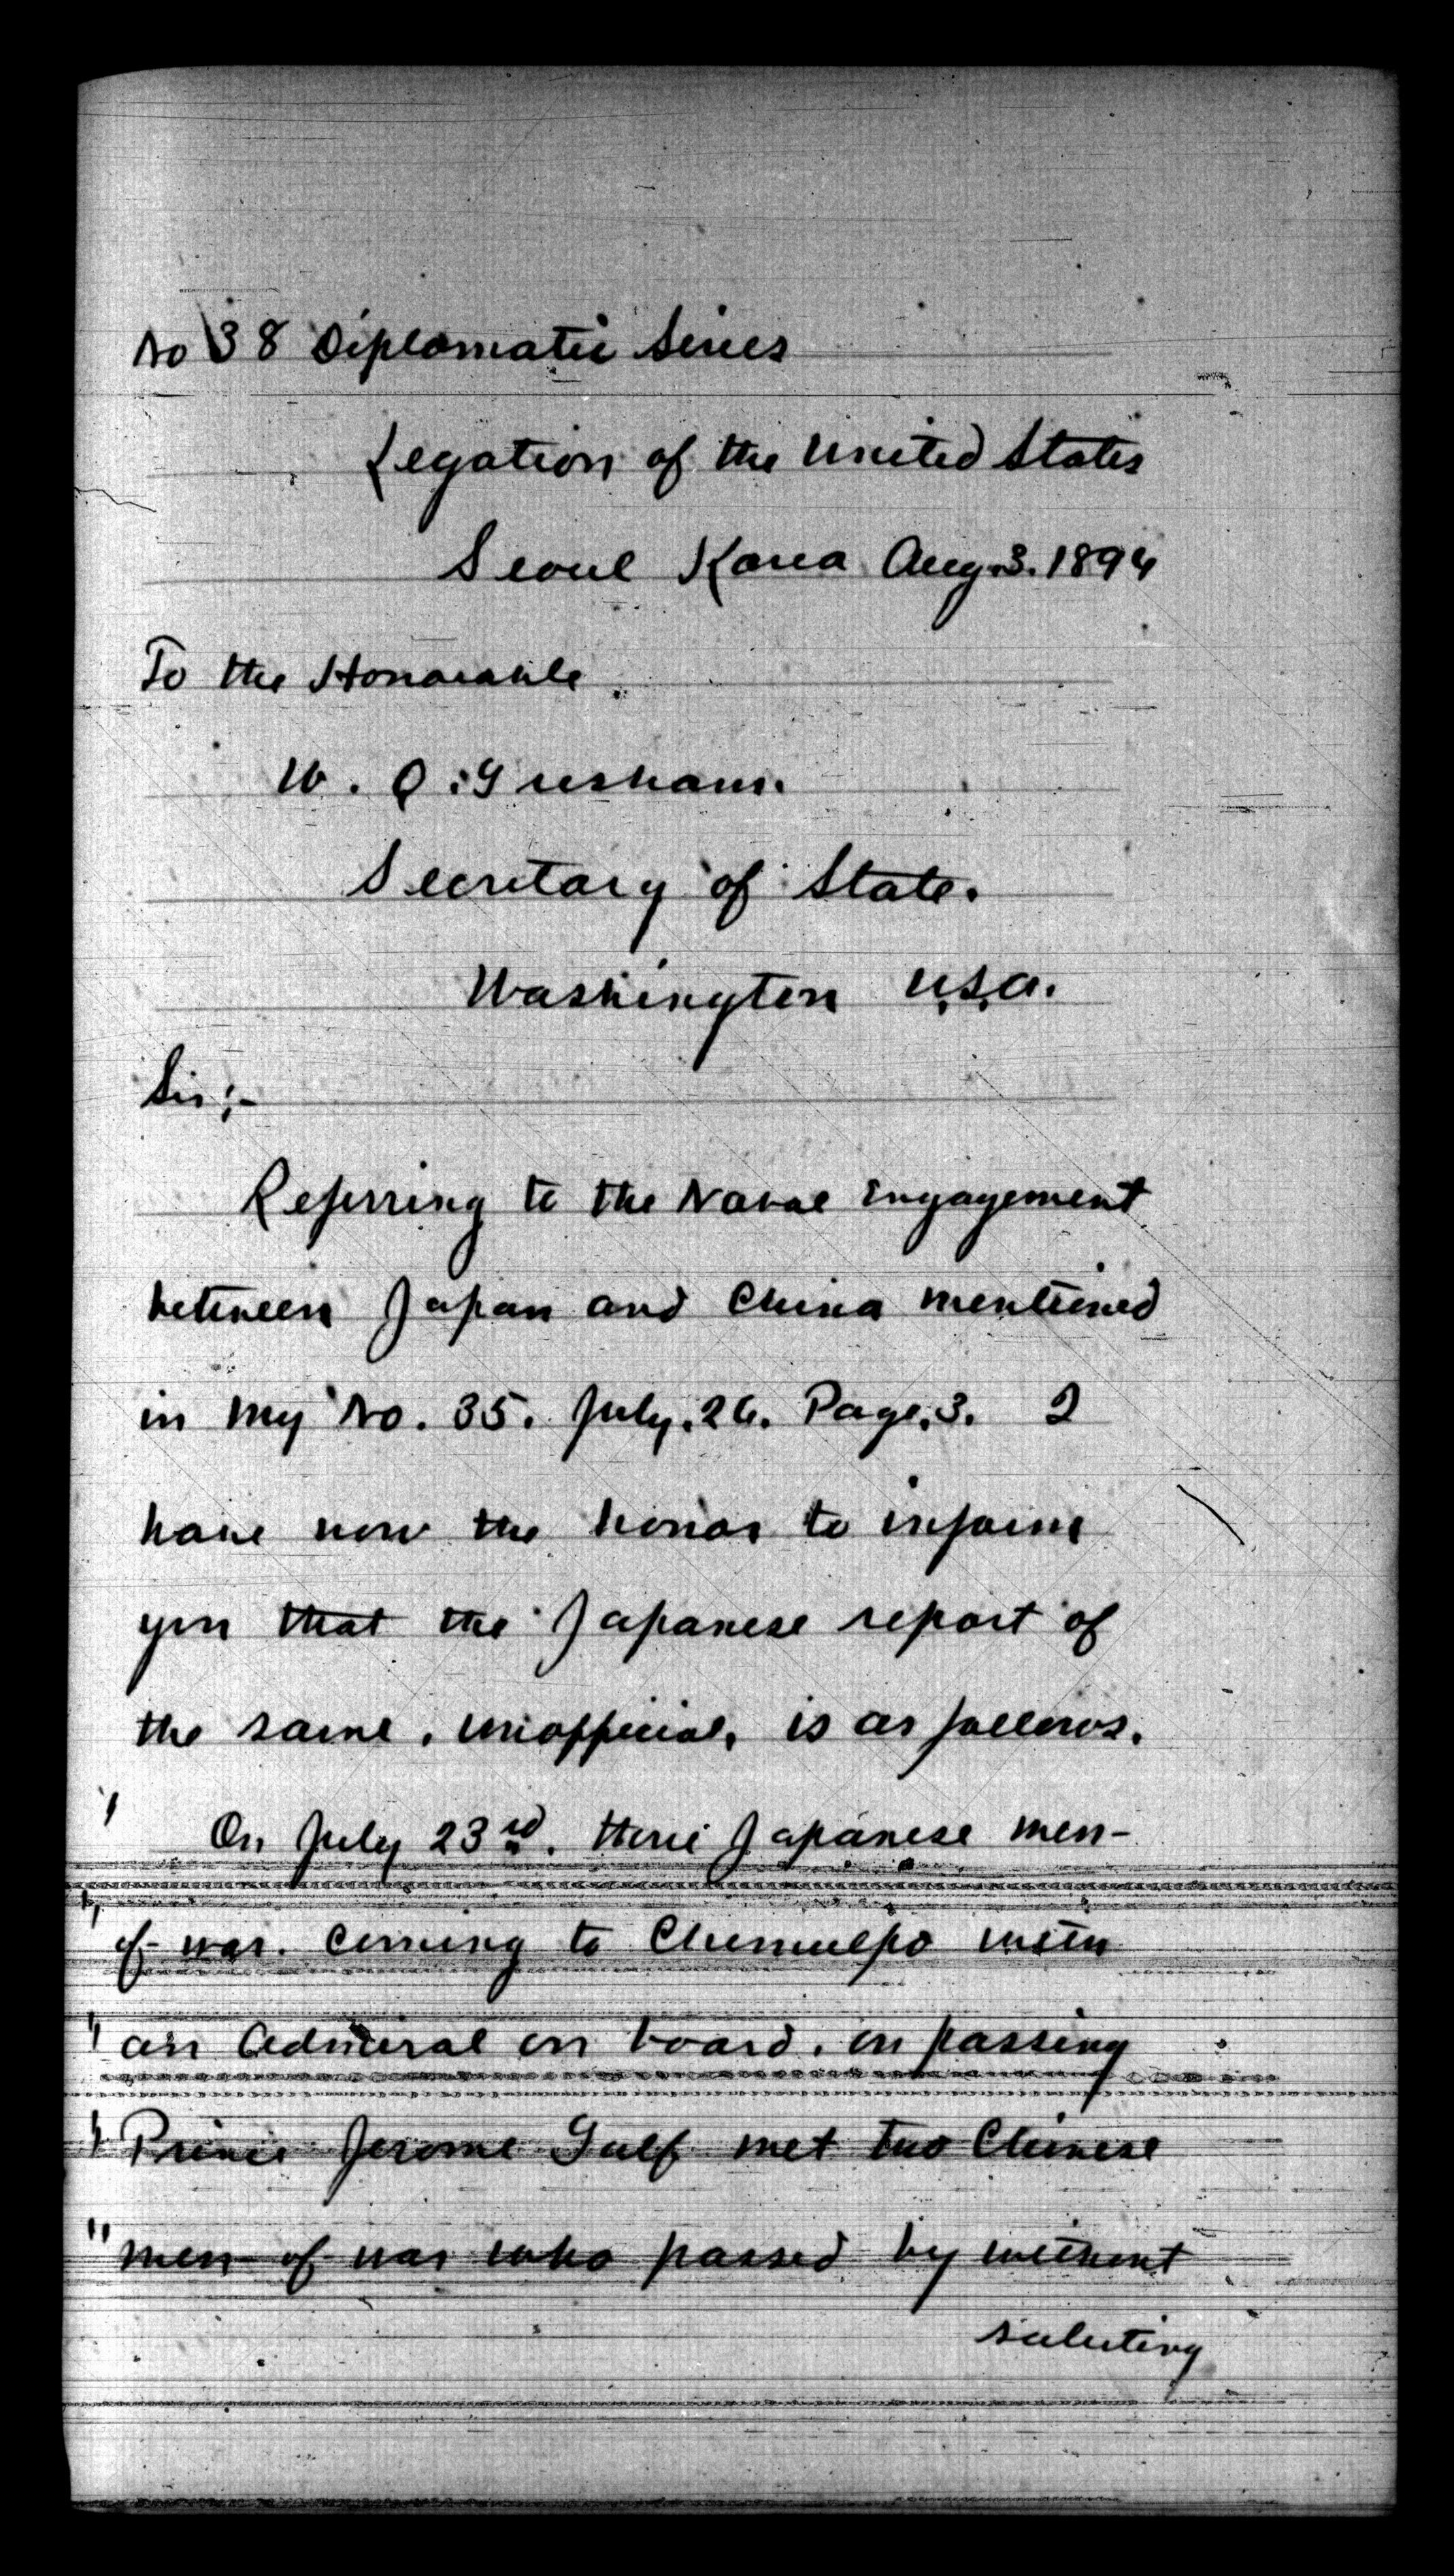 No 38 Diplomatic Series
Legation of the United States
Seoul Korea Aug. 3. 1894
To the Honorable
W. Q. Gresham.
Secretary of State.
Washington U.S.A.
Sir:-
Referring to the Naval Engagement
between Japan and China mentioned
in my No. 35. July. 26. Page. 3. I
have now the honor to inform
you that the Japanese report of
the same, unofficial, is as follows.
" On July 23rd. three Japanese men-
" of-war. coming to Chemulpo with
" an Admiral on board, on passing
" Prince Jerome Gulf met two Chinese
" men-of-war who passed by without
saluting